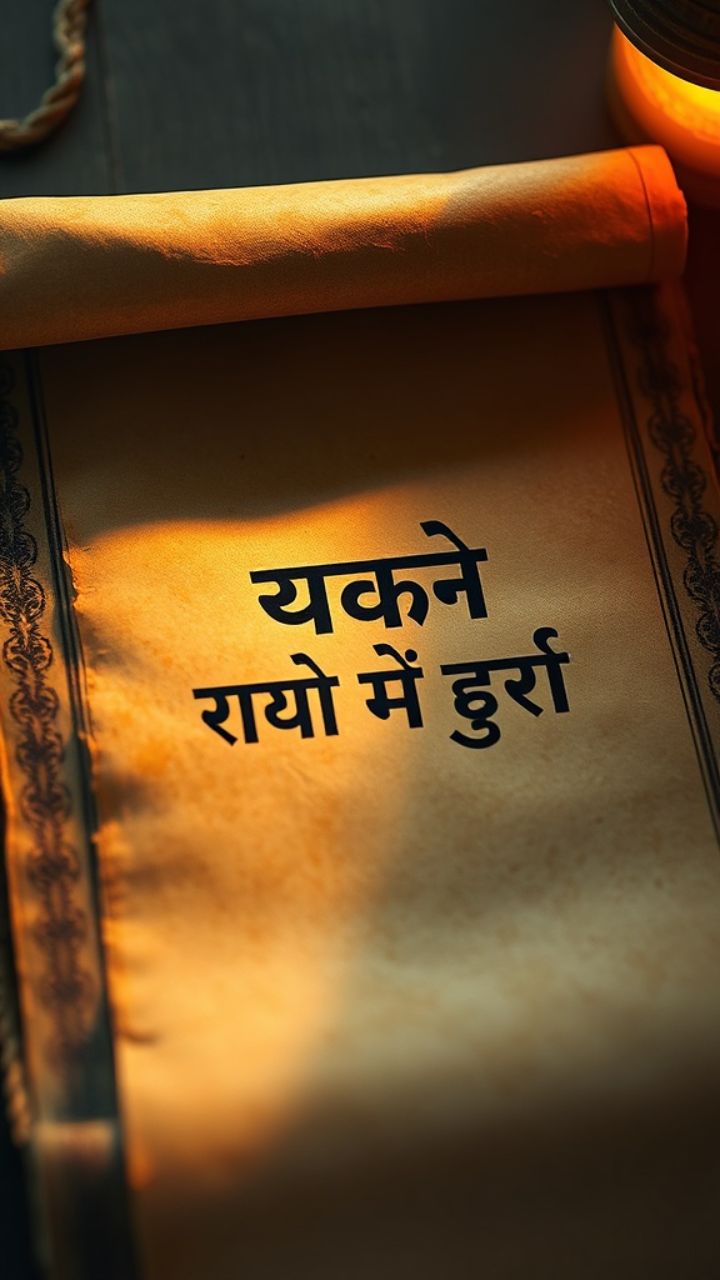 यकने
रायो में हुर्रा